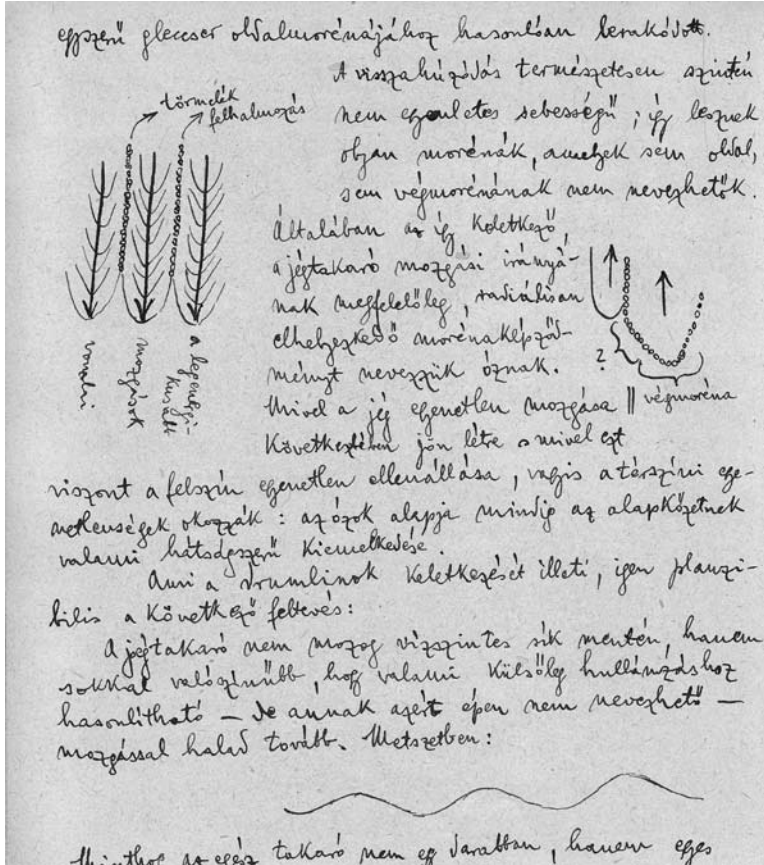 egyszerű gleccser oldalmorénájához hasonlóan lerakódott.
törmelék
felhalmozás
A visszahúzódás természetesen szintén
nem egyenletes sebességű; így lesznek
olyan morénák, amelyek sem oldal,
sem végmorénának nem nevezhetők.
Általában az így keletkező,
a jégtakaró mozgási irányá-
nak megfelelőleg, radiálisan
elhelyezkedő morénaképződ-
ményt nevezzük óznak.
valami
mozgások
a legenergi-
kusabb
?
végmoréna
Mivel a jég egyenetlen mozgása ||
következtében jön létre s mivel ezt
viszont a felszín egyenetlen ellenállása, vagyis a térszíni egye-
netlenségek okozzák: az ózok alapja mindig az alapkőzetnek
valami hátságszerű kiemelkedése.
Ami a drumlinok keletkezését illeti, igen plauzi-
bilis a következő feltevés:
A jégtakaró nem mozog vízszintes sík mentén, hanem
sokkal valószínűbb, hogy valami külsőleg hullámzáshoz
hasonlítható — de annak azért épen nem nevezhető —
mozgással halad tovább. Metszetben:
Minthogy az egész takaró nem egy darabban, hanem egyes